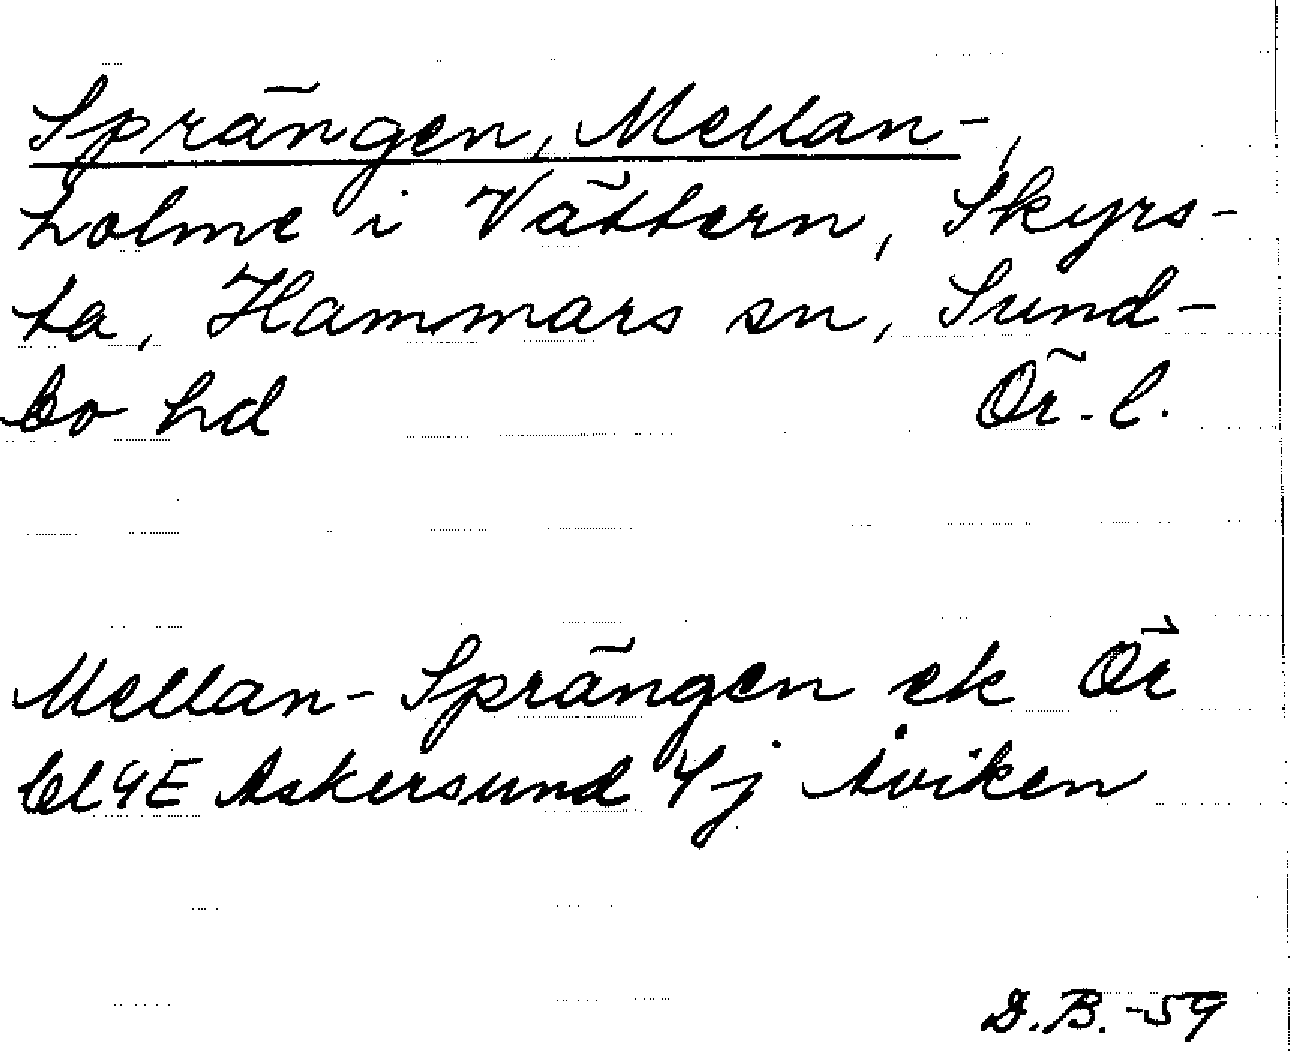 Sprängen, Mellan-,
holme i Vättern, Skyrs-
ta, Hammars sn, Sund-
bo hd Ör. l.
Mellan-Sprängen ek Ör
bl 9E Askersund 4j Åviken
D.B.-59